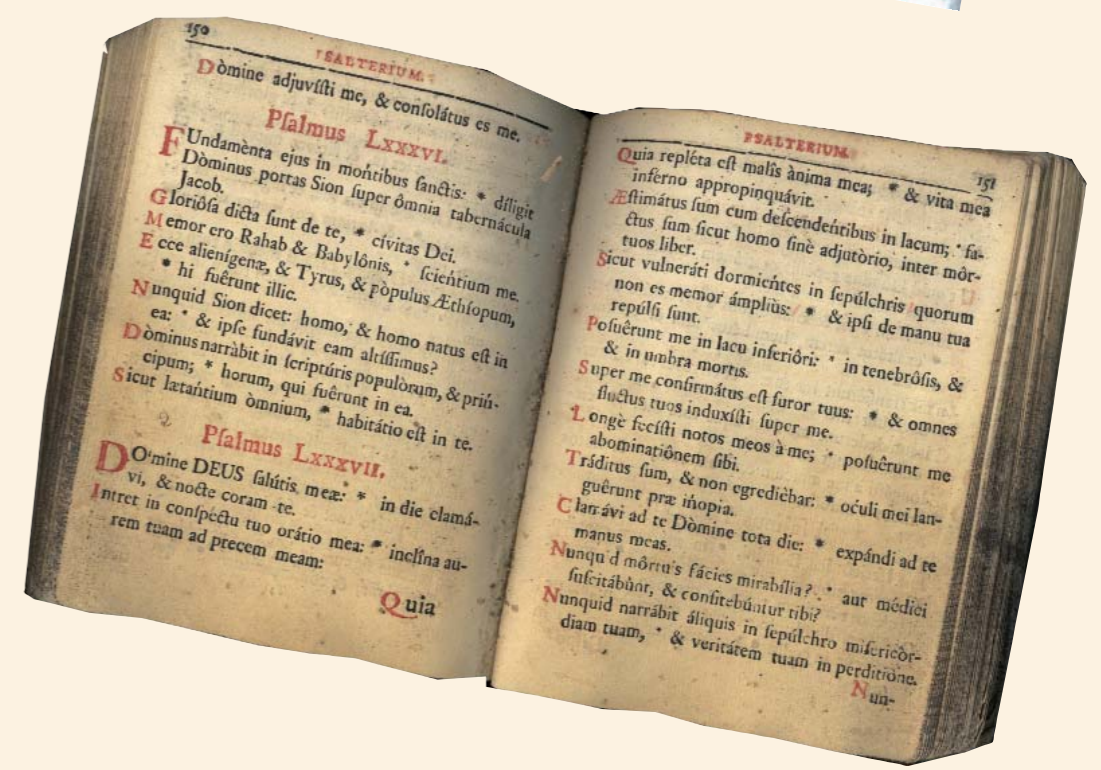 150
PSALTERIUM.
Dòmine adjuvísti me, & consolátus es me.
Psalmus LXXXVI.
FUndamènta ejus in montibus sanctis: * díligit
Dòminus portas Sion super ômnia tabernácula
Jacob.
Gloriôsa dicta sunt de te, * cívitas Dei.
Memor ero Rahab & Babylônis, * scientium me.
Ecce alienígenæ, & Tyrus, & pòpulus Æthíopum,
* hi fuêrunt illic.
Nunquid Sion dicet: homo, & homo natus est in
ea: * & ipse fundávit eam altíssimus?
Dòminus narràbit in scriptúris populòrum, & prin-
cipum; * horum, qui fuêrunt in ea.
Sicut lætántium òmnium, * habitátio est in te.
Psalmus LXXXVII.
DO'mine DEUS salútis meæ: * in die clamá-
vi, & nocte coram te.
Intret in conspectu tuo orátio mea: * inclîna au-
rem tuam ad precem meam:
Quia
PSALTERIUM.
151
Quia repléta est malis ànima mea; * & vita mea
inferno appropinquávit.
Æstimátus sum cum descendentibus in lacum; * fa-
ctus sum sicut homo sinè adjutòrio, inter môr-
tuos liber.
Sicut vulneráti dormientes in sepúlchris quorum
non es memor ámpliùs: * & ipsi de manu tua
repúlsi sunt.
Posuêrunt me in lacu inferiôri: * in tenebrôsis, &
& in umbra mortis.
Super me confirmátus est furor tuus: * & omnes
fluctus tuos induxísti super me.
Longè fecísti notos meos à me; * posuêrunt me
abominatiônem sibi.
Tráditus sum, & non egredièbar: * oculi mei lan-
guêrunt præ inopia.
Clamávi ad te Dòmine tota die: * expándi ad te
manus meas.
Nunqu d môrtu's fácies mirabília? * aut médici
suscitábùnt, & confitebúntur tibi?
Nunquid narrábit áliquis in sepúlchro misericòr-
diam tuam, * & veritátem tuam in perditiòne.
Nun-